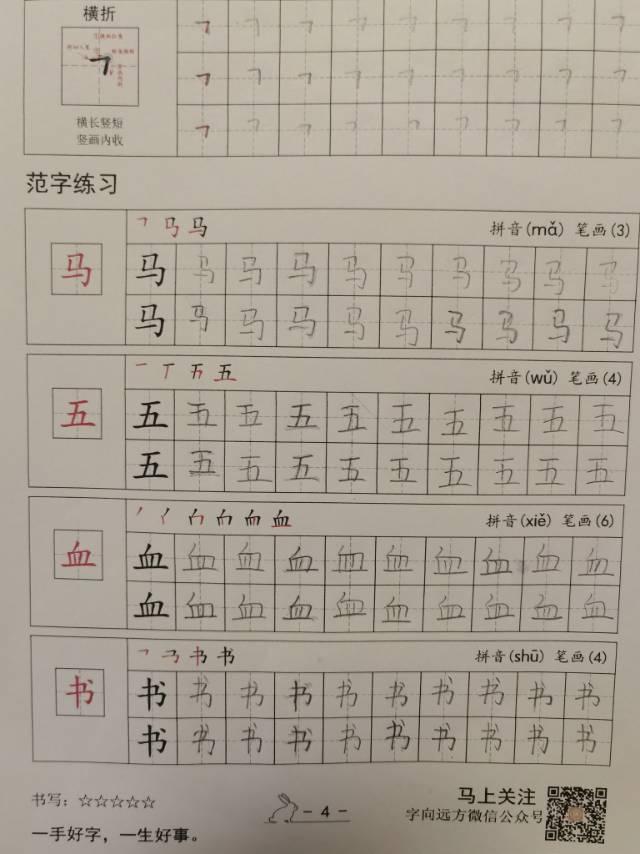 横折
横长竖短
竖画内收
范字练习
马 拼音(mǎ) 笔画(3)
马 马 马 马 马 马 马 马 马 马 马
马 马 马 马 马 马 马 马 马 马
五 拼音(wǔ) 笔画(4)
五 五 五 五 五 五 五 五 五 五 五
五 五 五 五 五 五 五 五 五 五
血 拼音(xiě) 笔画(6)
血 血 血 血 血 血 血 血 血 血 血
血 血 血 血 血 血 血 血 血 血
书 拼音(shū) 笔画(4)
书 书 书 书 书 书 书 书 书 书 书
书 书 书 书 书 书 书 书 书 书
书写：☆☆☆☆☆
- 4 -
马上关注
字向远方微信公众号
一手好字，一生好事。